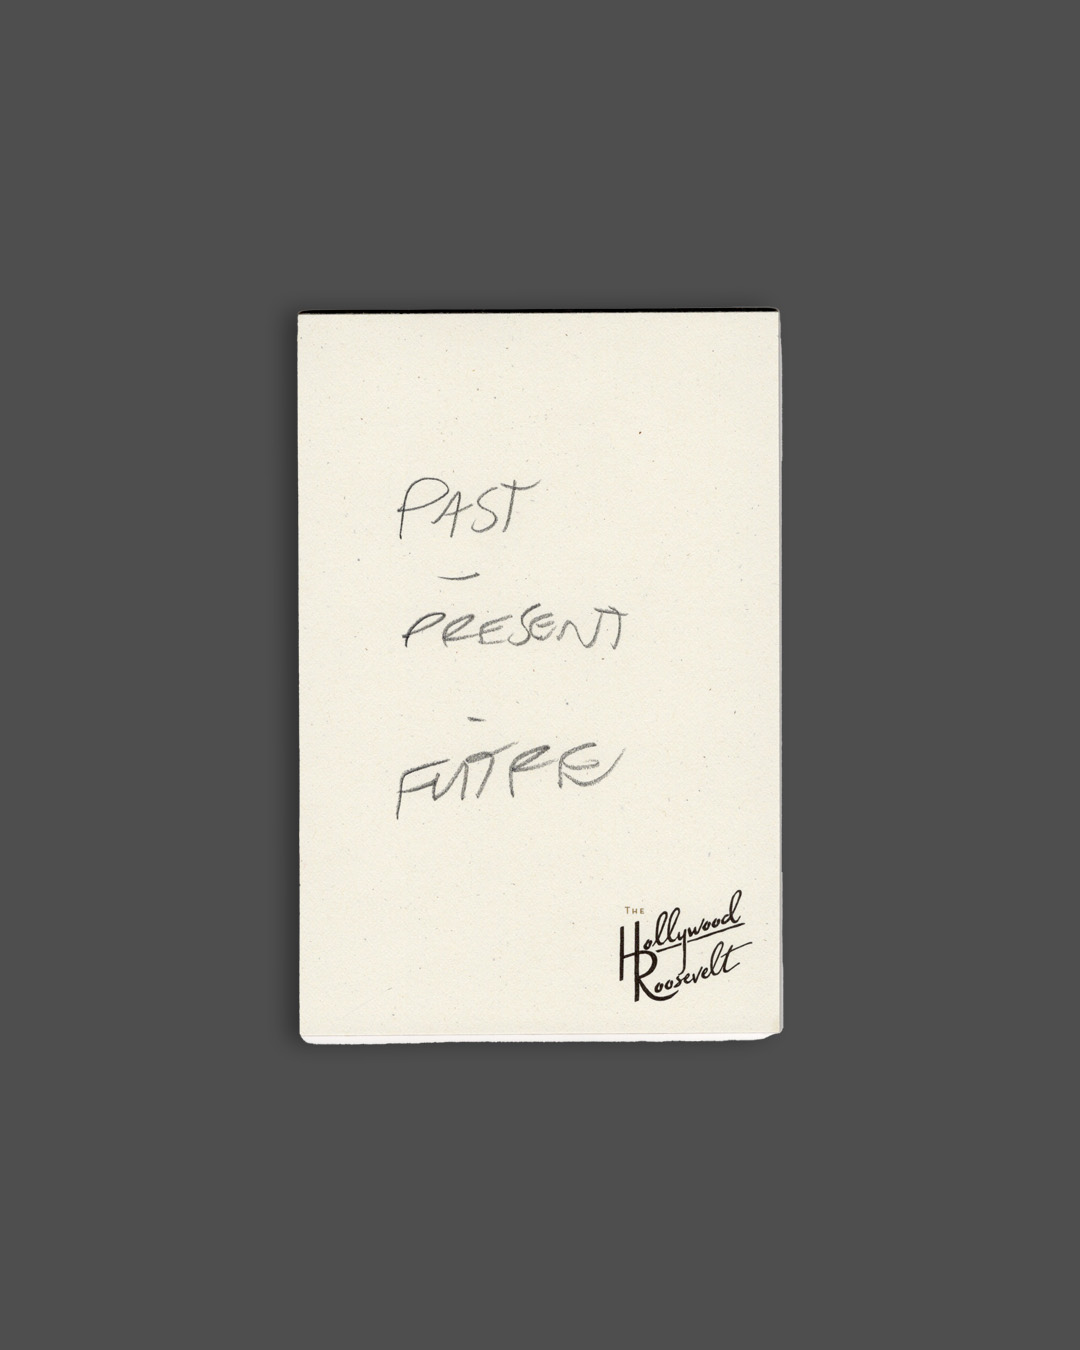 PAST
-
PRESENT
-
FUTURE
THE
Hollywood
Roosevelt